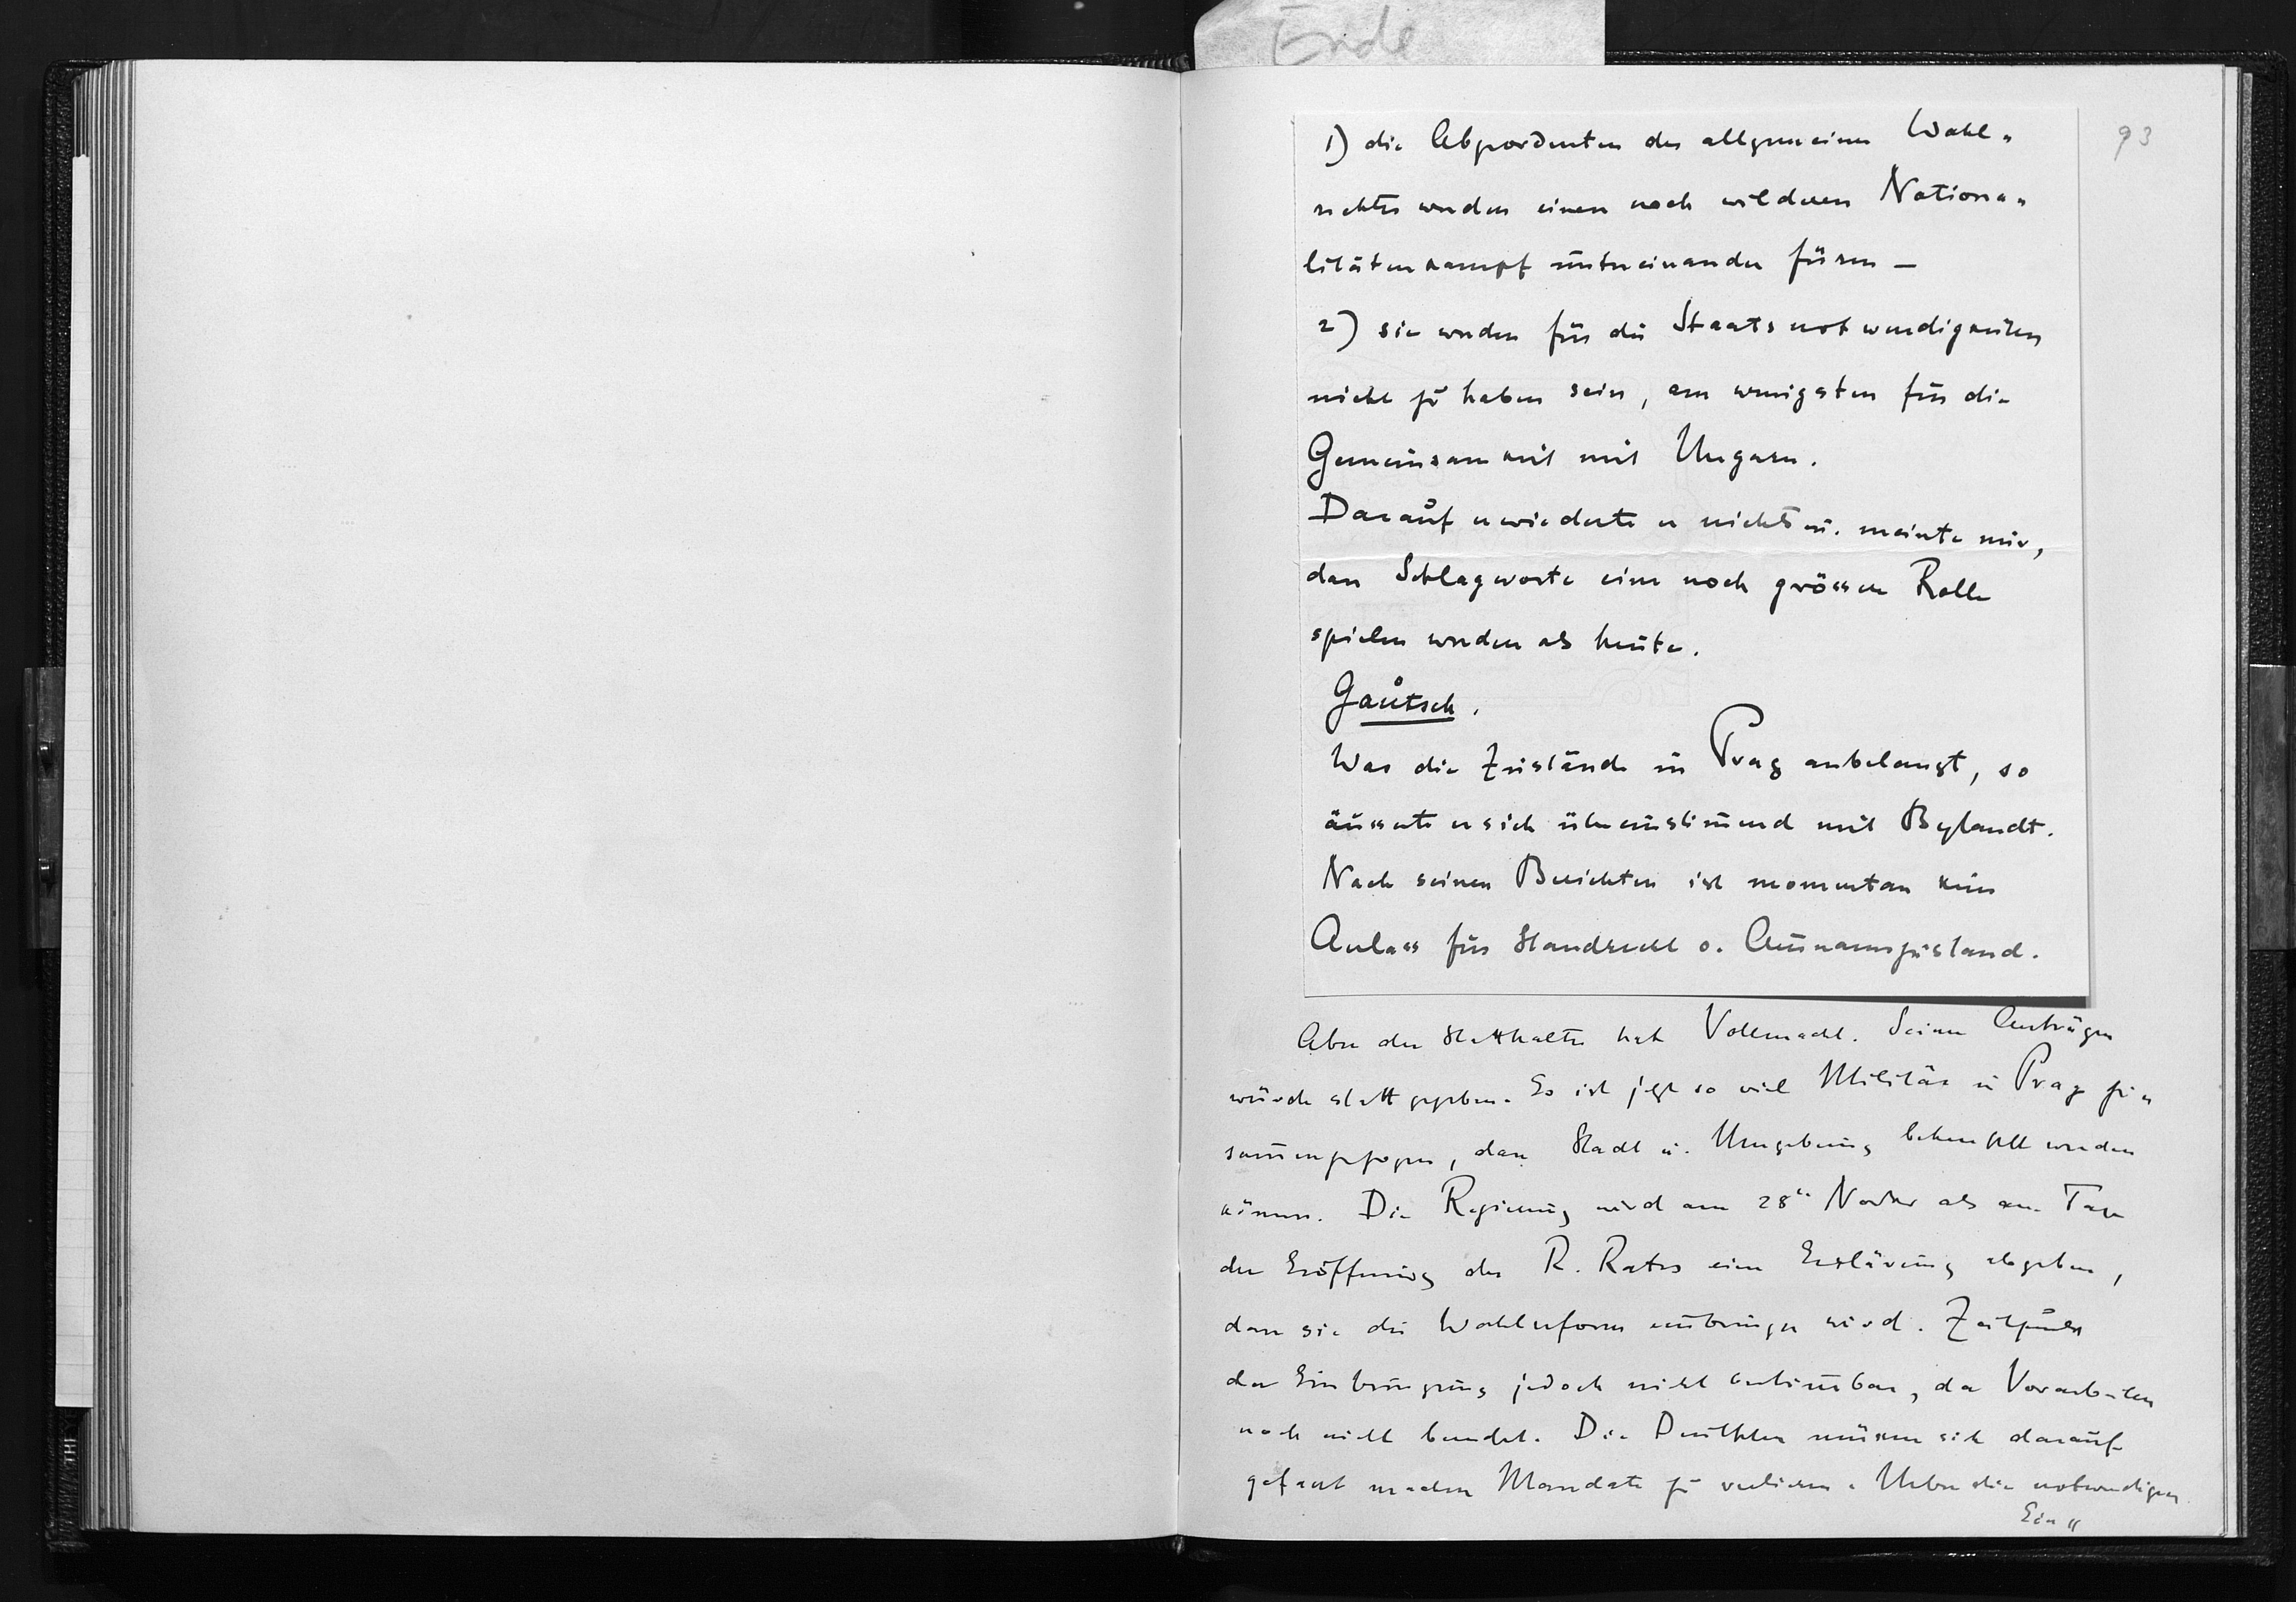 Ende
93
1) die Abgeordneten des allgemeinen Wahl-
rechtes werden einen noch wilderen Nationa-
litätenkampf untereinander füren –
2) sie werden für die Staatsnotwendigkeiten
nicht zu haben sein, am wenigsten für die
Gemeinsamkeit mit Ungarn.
Darauf erwiederte er nichts u. meinte nur,
dass Schlagworte eine noch grössere Rolle
spielen werden als heute.
Gautsch.
Was die Zustände in Prag anbelangt, so
äusserte er sich übereinstimmend mit Bylandt.
Nach seinen Berichten ist momentan kein
Anlass für Standrecht o. Ausnamszustand.
Aber der Statthalter hat Vollmacht. Seinen Anträgen
wurde stattgegeben. Es ist jezt so viel Militär in Prag zu-
sammengezogen, dass Stadt u. Umgebung behauptet werden
können. Die Regierung wird am 28ten Novber als am Tage
der Eröffnung des R. Rates eine Erklärung abgeben,
dass sie die Wahlreform einbringen wird. Zeitpunkt
der Einbringung jedoch nicht bestimmbar, da Vorarbeiten
noch nicht beendet. Die Deutschen müssen sich darauf
gefasst machen Mandate zu verlieren. Ueber die notwendigen
Ein-